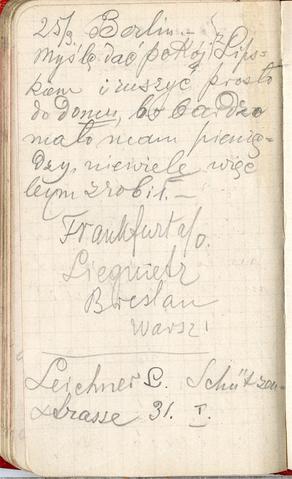 25/9. Berlin. —
Myślę dać pokój Lips-
kom i ruszyć prosto
do domu, bo bardzo
mało mam pienię-
dzy, niewiele więc
bym zrobił. —
Frankfurt a/o.
Liegnitz
Breslau
Warsz.
Leichner L. Schützen-
strasse 31. I.